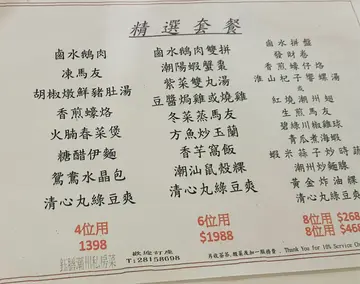 精選套餐
鹵水鵝肉
凍馬友
胡椒燉鮮豬肚湯
香煎蠔烙
火腩春菜煲
糖醋伊麵
鴛鴦水晶包
清心丸綠豆爽
4位用
1398
鹵水鵝肉雙拼
潮陽蝦蟹棗
紫菜雙丸湯
豆醬焗雞或燒雞
冬菜蒸馬友
方魚炒玉蘭
香芋窩飯
潮汕鼠殼粿
清心丸綠豆爽
6位用
$1988
鹵水拼盤
發財卷
香煎蠔仔烙
淮山杞子響螺湯
或
紅燒潮州翅
生煎馬友
碧綠川椒雞球
青瓜煮海蝦
蝦米蒜子炒時蔬
潮州炒麵線
黃金炸油粿
清心丸綠豆爽
8位用 $268
8位用 $468
歡迎訂座
T:28158698
另收茶芥,
Thank You for 10% Service